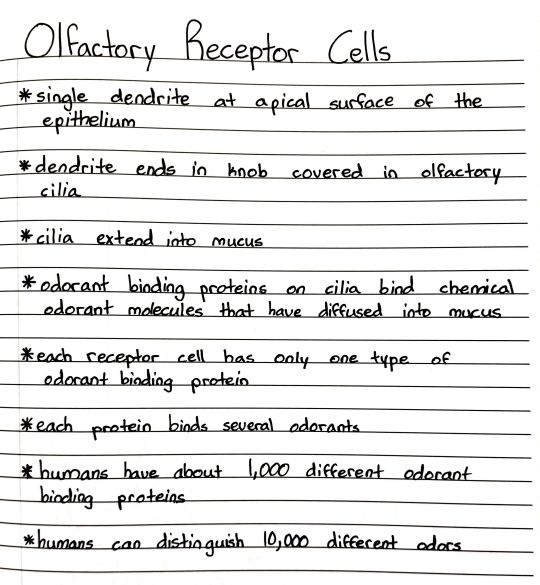 Olfactory Receptor Cells
*single dendrite at apical surface of the
epithelium
*dendrite ends in knob covered in olfactory
cilia
*cilia extend into mucus
*odorant binding proteins on cilia bind chemical
odorant molecules that have diffused into mucus
*each receptor cell has only one type of
odorant binding protein
*each protein binds several odorants
*humans have about 1,000 different odorant
binding proteins
*humans can distinguish 10,000 different odors